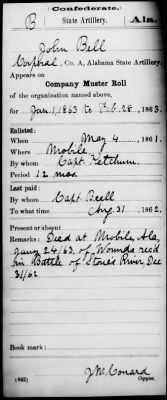 Confederate.
B State Artillery. Ala.
John Bell
Corporal, Co. A, Alabama State Artillery.
Appears on
Company Muster Roll
of the organization named above,
for Jan. 1, 1863 to Feb. 28, 1863.
Enlisted:
When May 4 1861.
Where Mobile
By whom Capt Ketchum
Period 12 mos.
Last paid:
By whom Capt
To what time Aug 31, 1862.
Present or absent
Remarks: Died at Mobile, Ala,
Jany 24/63, of Wounds recd
in Battle of Stones River, Dec
31/62
Book mark:
(642) J M Conard
Copyist.